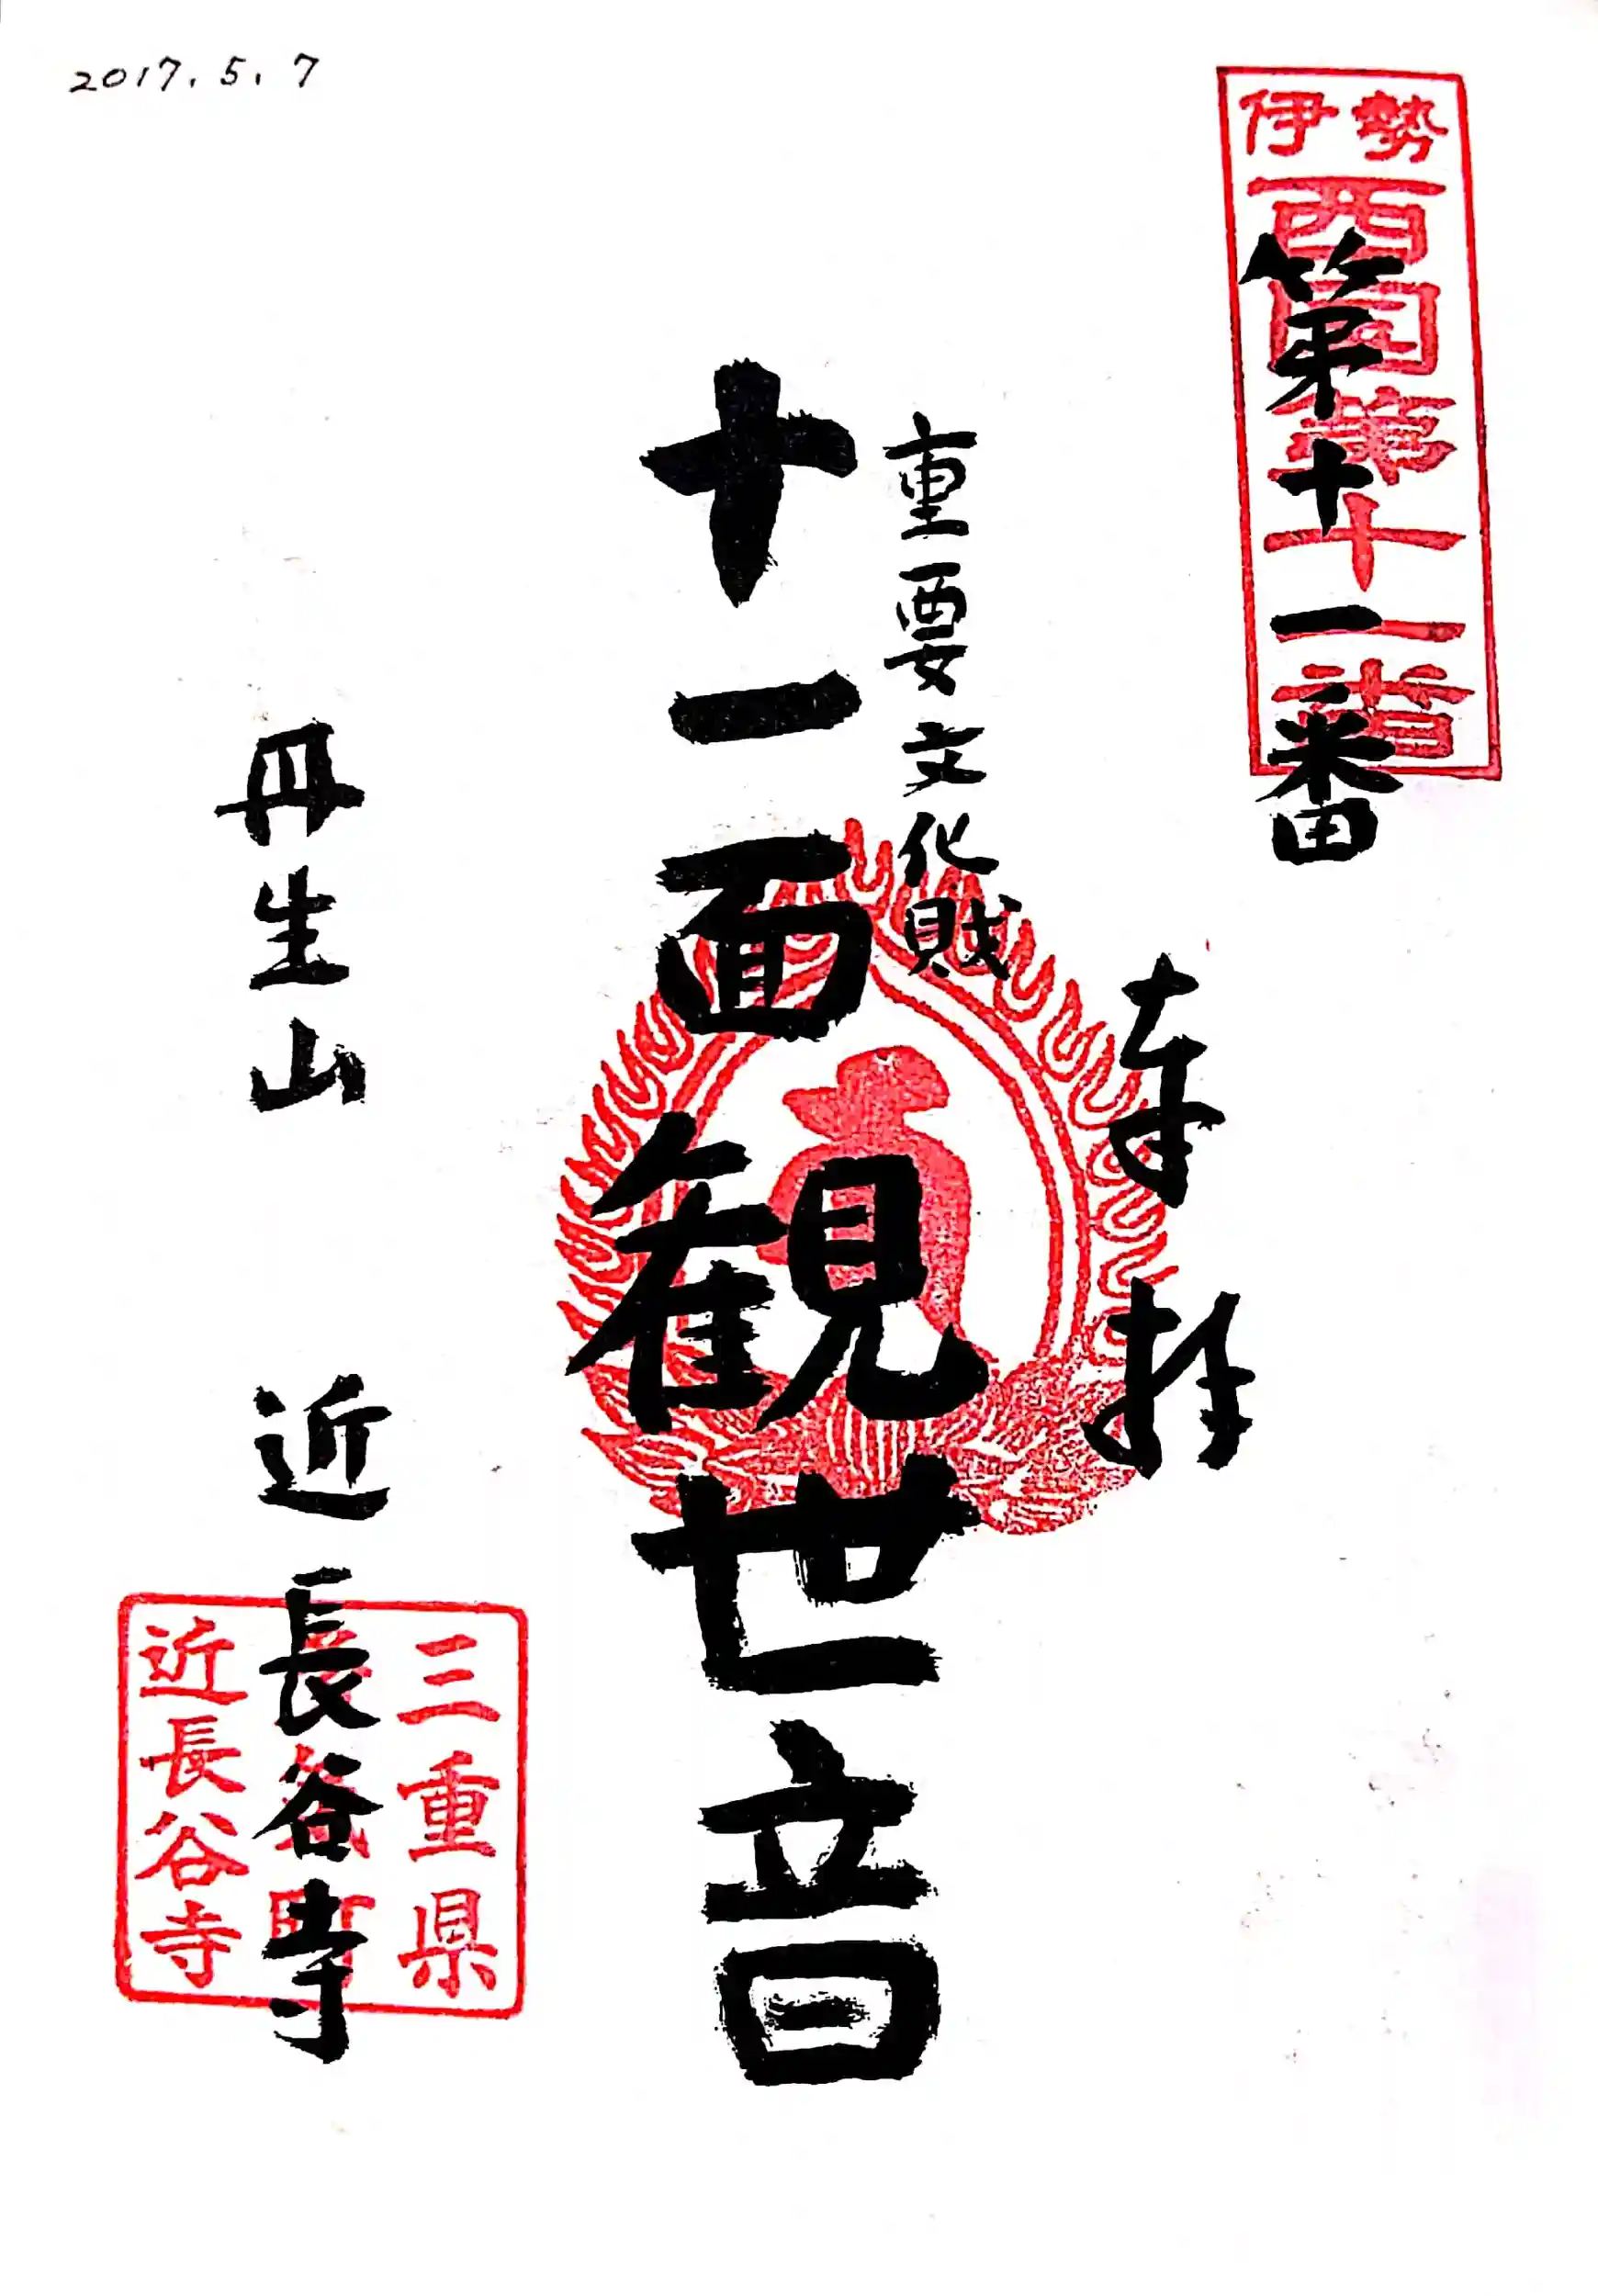 2017.5.7
伊勢
西国第十一番
第十一番
奉拝
重要文化財
十一面観世音
丹生山 近長谷寺
三重県
近長谷寺